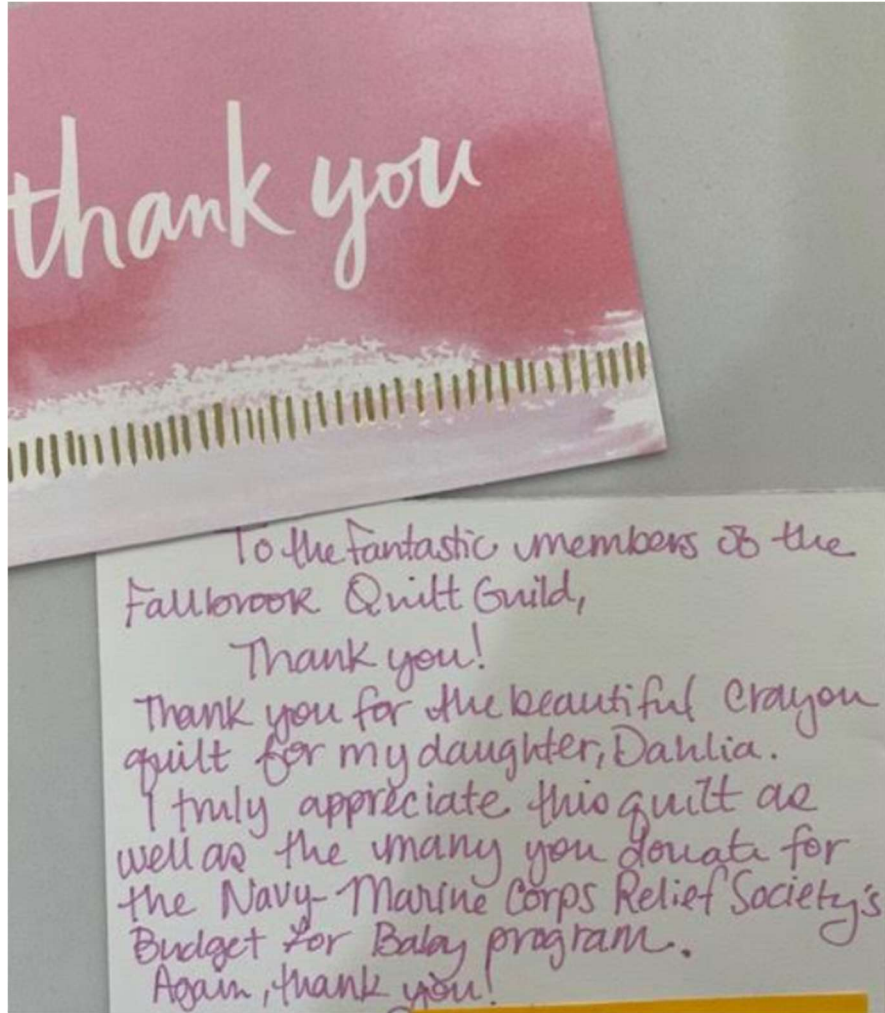 thank you
To the Fantastic members of the
Fallbrook Quilt Guild,
Thank you!
Thank you for the beautiful Crayon
quilt for my daughter, Dahlia.
I truly appreciate this quilt as
well as the many you donate for
the Navy-Marine Corps Relief Society's
Budget for Baby program.
Again, thank you!